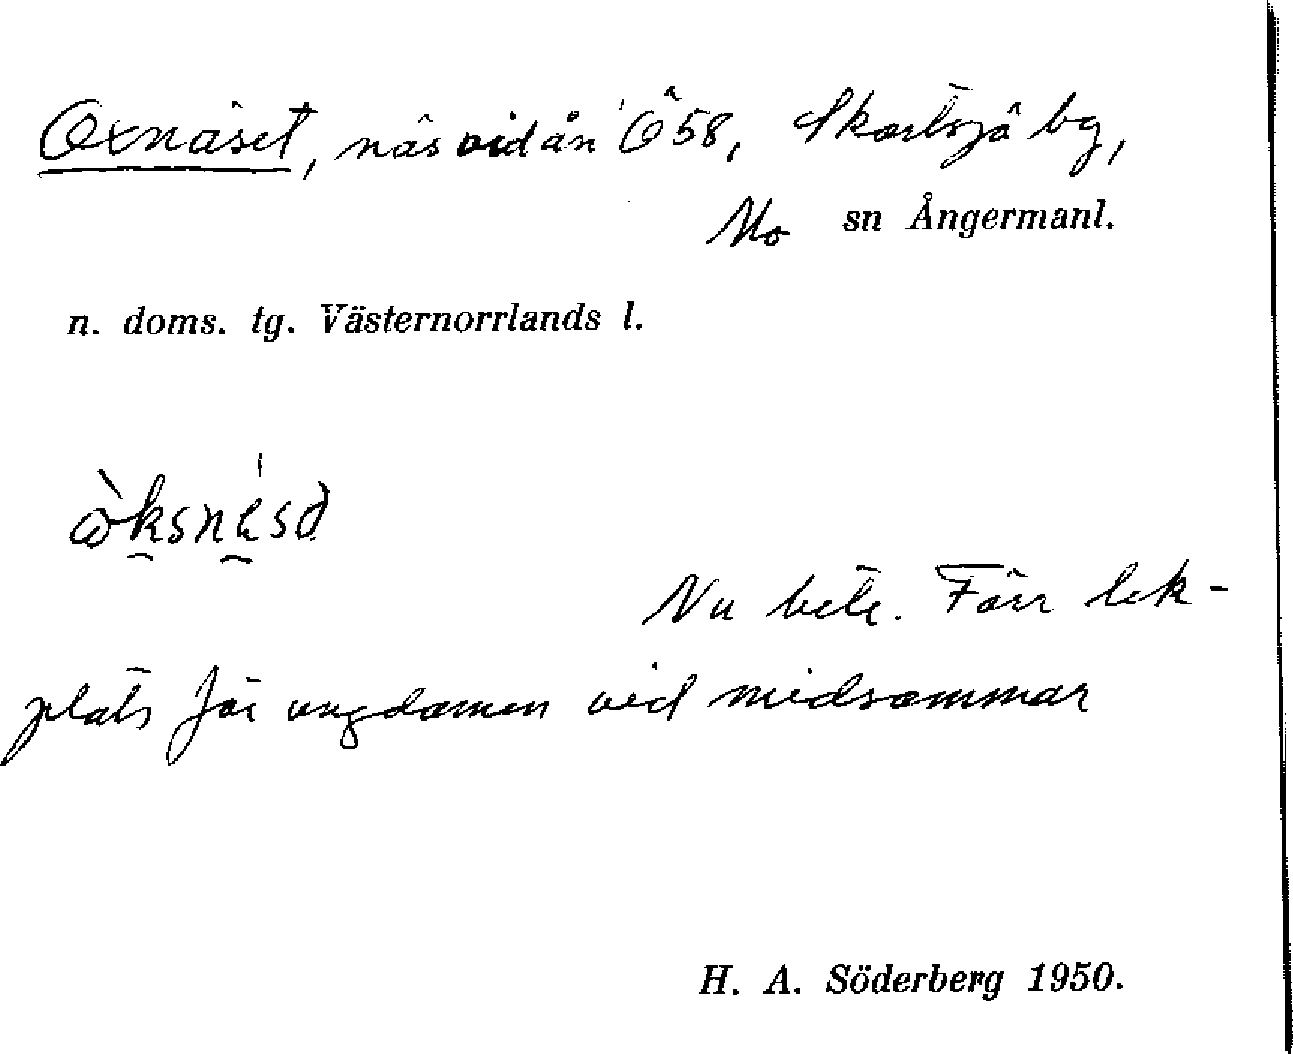 Oxnäset, näs vid ån Ö58, Skortsjö bg,
Mo sn Ångermanl.
n. doms. tg. Västernorrlands l.
Nu bete. Förr lek-
plats för ungdomen vid midsommar
H. A. Söderberg 1950.